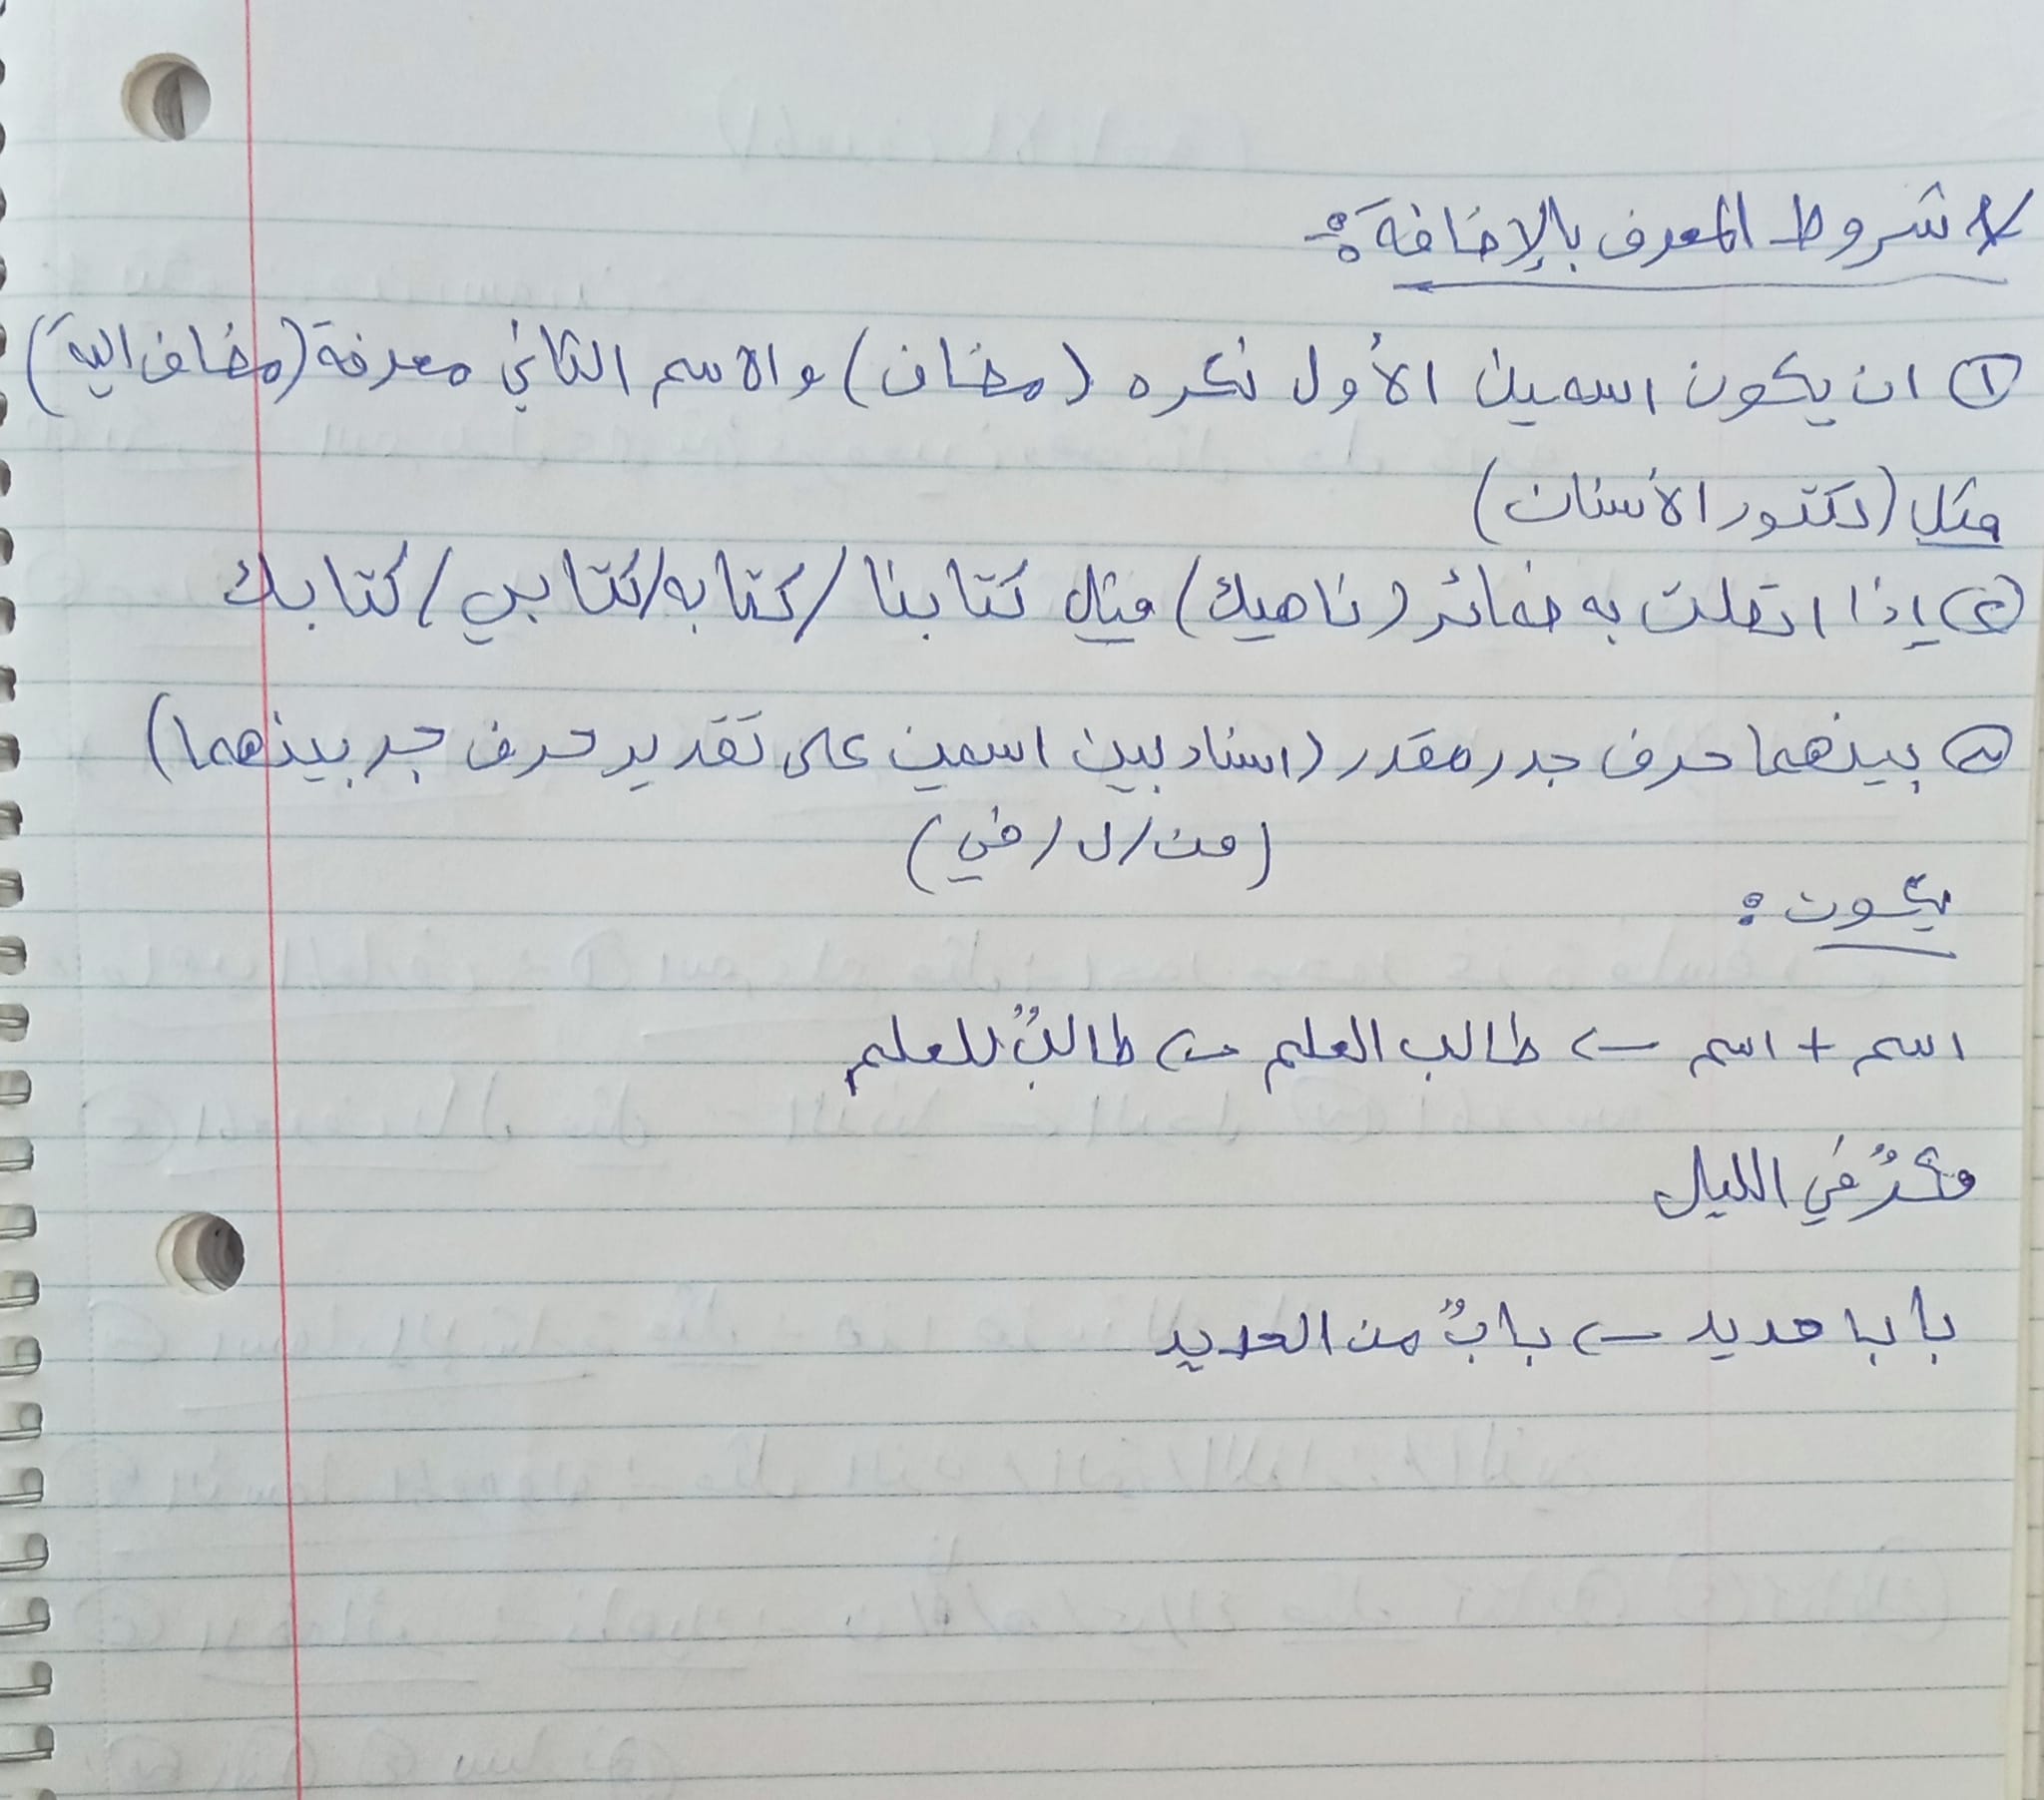 * شروط المعرف بالإضافة :-
① ان يكون اسمين الأول نكره (مضاف) والاسم الثاني معرفة (مضاف اليه)
مثل (دكتور الأسنان)
② إذا اتصلت به ضمائر (ناهيك) مثل كتابنا / كتابه / كتابي / كتابك
③ بينهما حرف جر مقدر (اسناد بين اسمين على تقدير حرف جر بينهما)
(من / ل / في)
يكون :
اسم + اسم ← طالب العلم ← طالبٌ للعلم
مكرٌ في الليل
بابا حديد ← بابٌ من الحديد